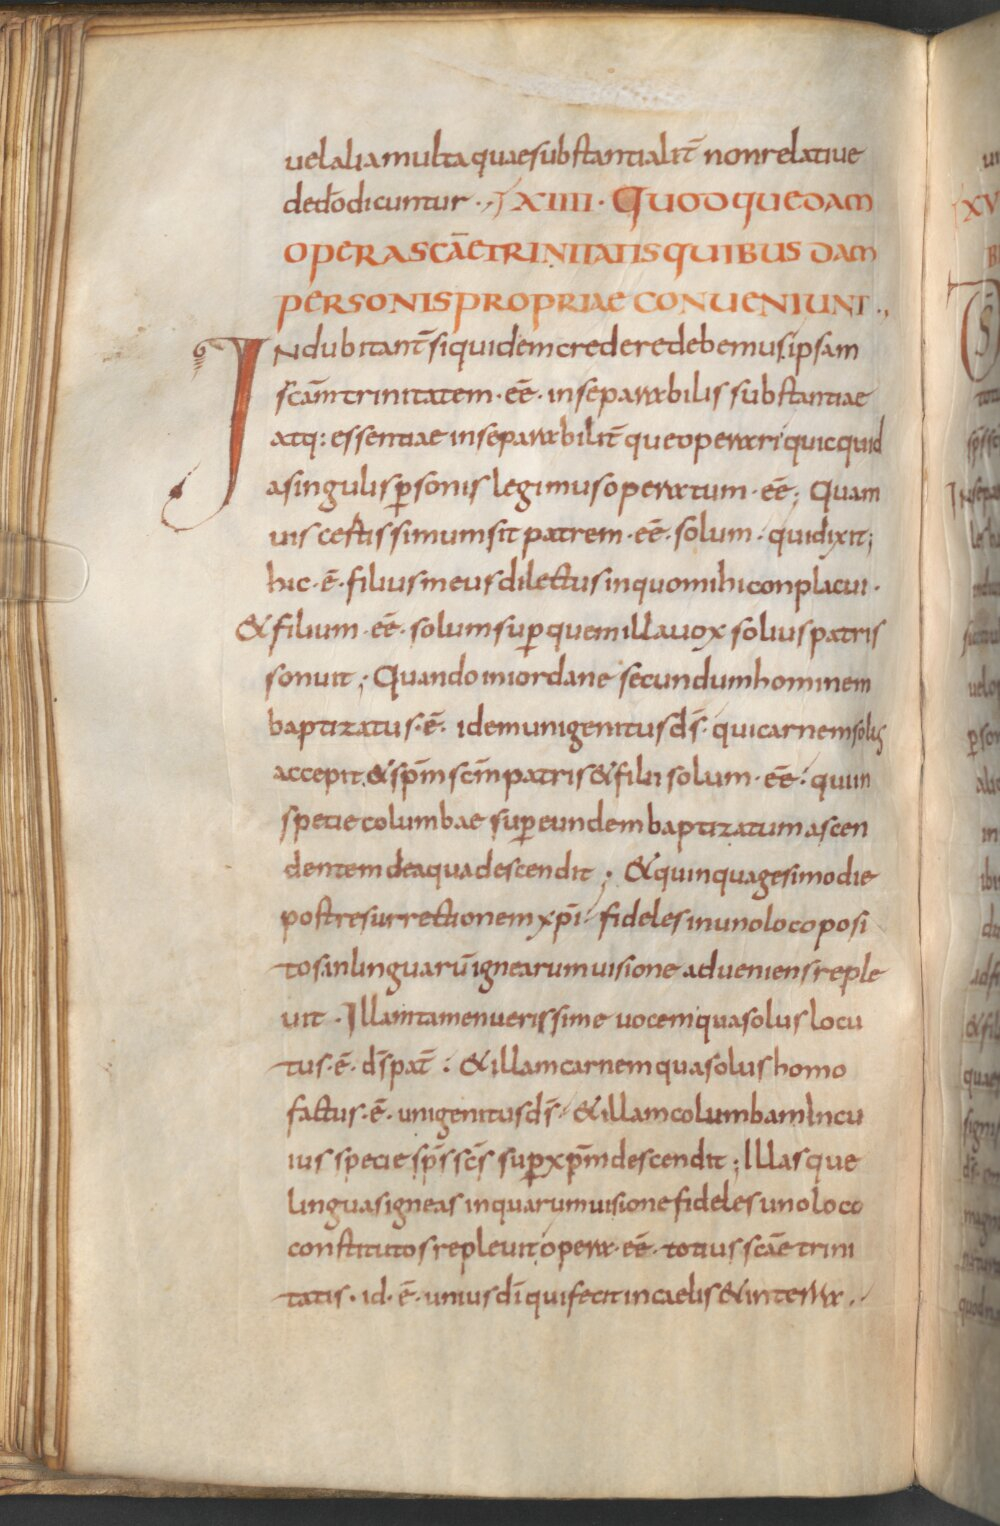 uel alia multa quae substantialit̄ non relatiue
de do̅ dicuntur ·,, XIIII · Quod quedam
opera scāe trinitatis quibusdam
personis propriae conueniunt ·,,
Indubitant̄ siquidem credere debemus ipsam
scām trinitatem · eē · inseparabilis substantiae
atq: essentiae inseparabilit̄ que operari quicquid
a singulis ꝑsonis legimus operatum · eē ; Quam
uis certissimum sit patrem · eē · solum · qui dixit ;
hic · ē · filius meus dilectus in quo mihi conplacui ·
& filium · eē · solum suꝑ quem illa uox solius patris
sonuit ; Quando in iordane secundum hominem
baptizatus · ē · idem unigenitus ds̄ · qui carnem solus
accepit & spm̄ scm̄ patris & filii solum · eē · qui in
specie columbae suꝑ eundem baptizatum ascen
dentem de aqua descendit ; & quinquagesimo die
post resurrectionem xp̄i · fideles in uno loco posi
tos in linguarū ignearum uisione adueniens reple
uit · Illam tamen uerissime uocem qua solus locu
tus · ē · ds̄ pat̄ : & illam carnem qua solus homo
factus · ē · unigenitus ds̄ · & illam columbam In cu
ius specie sps̄ scs̄ suꝑ xpm̄ descendit ; Illasque
linguas igneas in quarum uisione fideles uno loco
constitutos repleuit opera · eē · totius scāe trini
tatis · id · ē · unius dī qui fecit in caelis & in terra ·